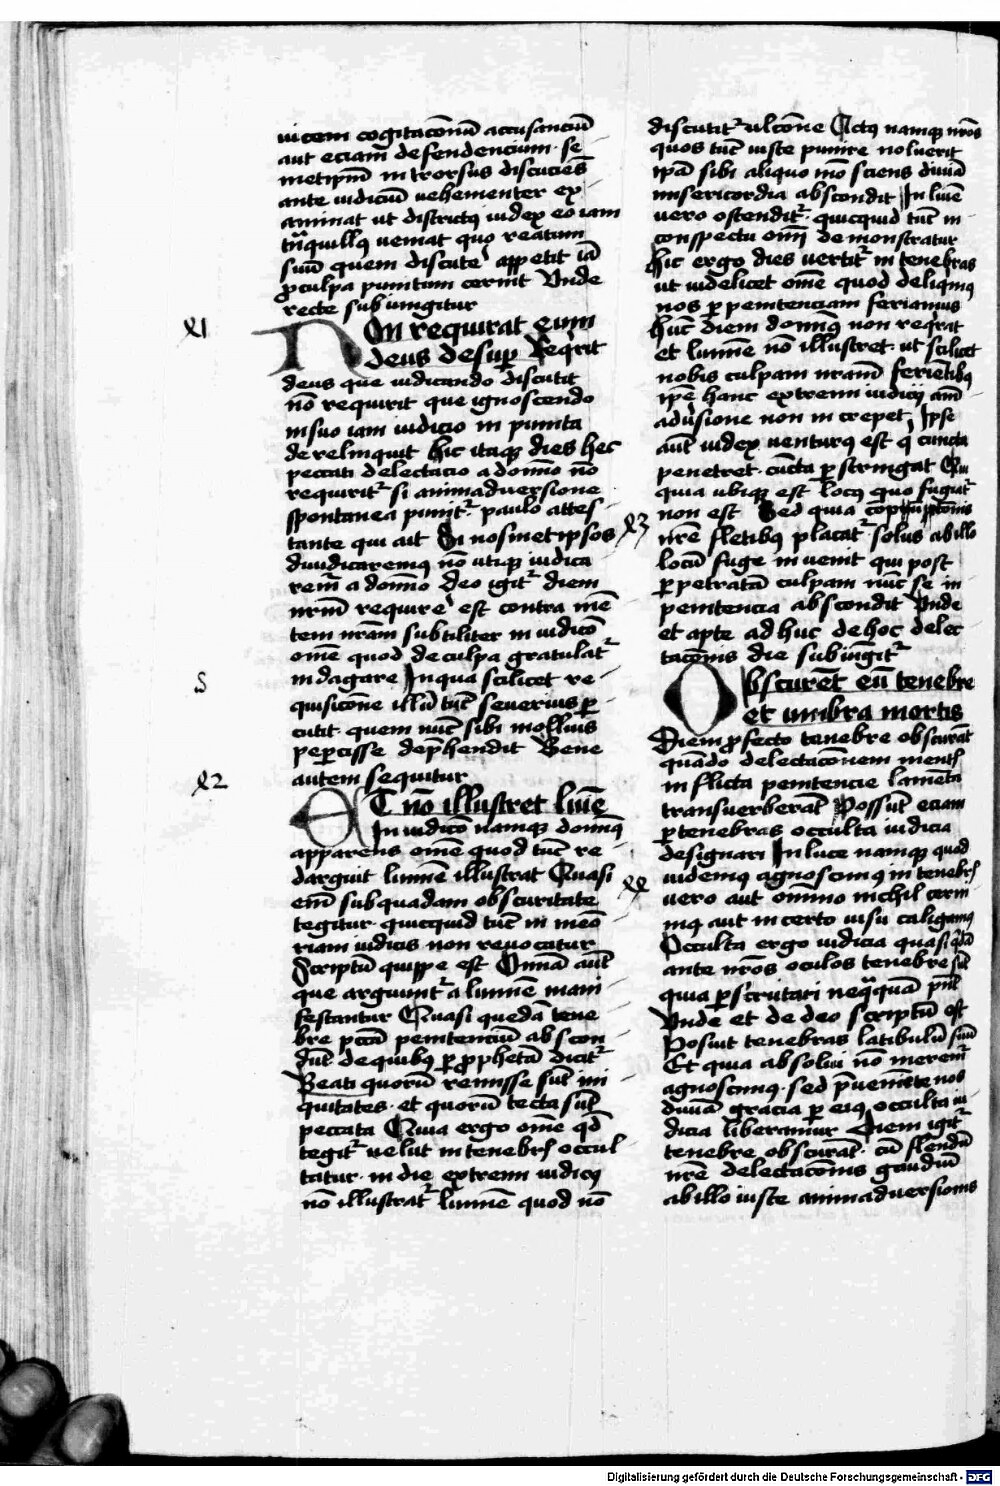 uicem cogitacōnū accusanciū
aut eciam defendencium · se
metipm̄ introrsus discuciēs
ante iudiciū vehementer ex
aminat ut districtus iudex eo iam
tn̄quillꝰ veniat quo reatum
suū quem discutē appetit iā
ꝓ culpa punitum cernit Unde
recte subiungitur
XI
Non requirat eum
deus desuꝑ Reqrit
deus que iudicando discutit
nō requirit que ignoscendo
in suo iam iudicio inpunita
derelinquit hic itaqꝫ dies hec
peccati delectacio a domīo nō
requiritᷣ si animadversione
spontanea punitᷣ paulo attes
tante qui ait Si nosmetipsos
diiudicaremꝰ nō utiqꝫ iudica
remᷣ a domīo deo igitᷣ diem
nrm̄ requirē est contra mē
tem nrām subtiliter in iudicō
omē quod de culpa gratulatᷣ
indagare In qua scilicet re
S
quisicōne illū tūc severius ꝑ
cutit quem nūc sibi mollius
peꝑcisse dep̄hendit Bene
autem sequitur
X2
ET nō illustret lumē
In iudicō namqꝫ domīꝰ
apparens omē quod tūc re
darguit lumīe illustrat Quasi
enī sub quadam obscuritate
tegitur quicquid tūc in meō
riam iudicis non revocatur
Scriptū quippe est Omīa aūt
que arguuntᷣ a lumīe mani
festantur Quasi quedā tene
bre pctā penitenciū abscon
dūt de quibꝰ ꝑ ꝓphetā dicitᷣ
Beati quorū remisse sūt ini
quitates · et quorū tecta sūt
peccata Quia ergo omē qd̄
tegitᷣ velut in tenebris occul
tatur · in die extremi iudicij
nō illustratᷣ lumīe quod nō
discutitᷣ ulcōne Actꝰ namqꝫ nr̄os
quos tūc iuste punire noluerit
ipā sibi aliquo mō sciens divīa
misericordia abscondit In lumē
vero ostenditᷣ quicquid tūc in
conspectu omī demonstratur
hic ergo dies vertitᷣ in tenebras
ut videlicet omē quod deliqimꝰ
nos ꝑ penitenciam feriamus
huc diem domīꝰ non reqrat
et lumīe nō illustret · ut scilicet
nobis culpam nram̄ ferientibꝰ
ipē hanc extremi iudicij anī
adūsione non increpet Ipse
aūt iudex venturꝰ est q cuncta
penetret · cūcta ꝑstringat Qui
quia ubiqꝫ est locꝰ quo fugiatᷣ
X3
non est Sed quia
nr̄e fletibꝰ placatᷣ solus ab illo
locū fuge invenit qui post
ꝑpetratā culpam nūc se in
penitencia abscondit Unde
et apte adhuc de hoc delec
tacōnis die subīugitᷣ
Obscurēt eū tenebre
et umbra mortis
Diem ꝓfecto tenebre obscurāt
quādo delectacōnem mentis
inflicta penitencie lamēta
transverberāt Possūt eciam
ꝑ tenebras occulta iudicia
designari In luce namqꝫ quod
XX
videmꝰ agnoscimꝰ in tenebris
vero aut omīno nichil cerni
mꝰ aut incerto visu caligamꝰ
Occulta ergo iudicia quasi qdā
ante nr̄os oculos tenebre sūt
quia ꝑscrutari neqquā pn̄t
Unde et de deo scriptū est
Posuit tenebras latibulū suū
Et quia absolvi nō meremᷣ
agnoscimꝰ · sed p̄veniēte nos
divīa gracia ꝑ eiꝰ occulta iu
dicia liberamur Diem igitᷣ
tenebre obscurāt · cū flendū
nr̄e delectacōnis gaudiū
ab illo iuste animadversionis
Digitalisierung gefördert durch die Deutsche Forschungsgemeinschaft - DFG